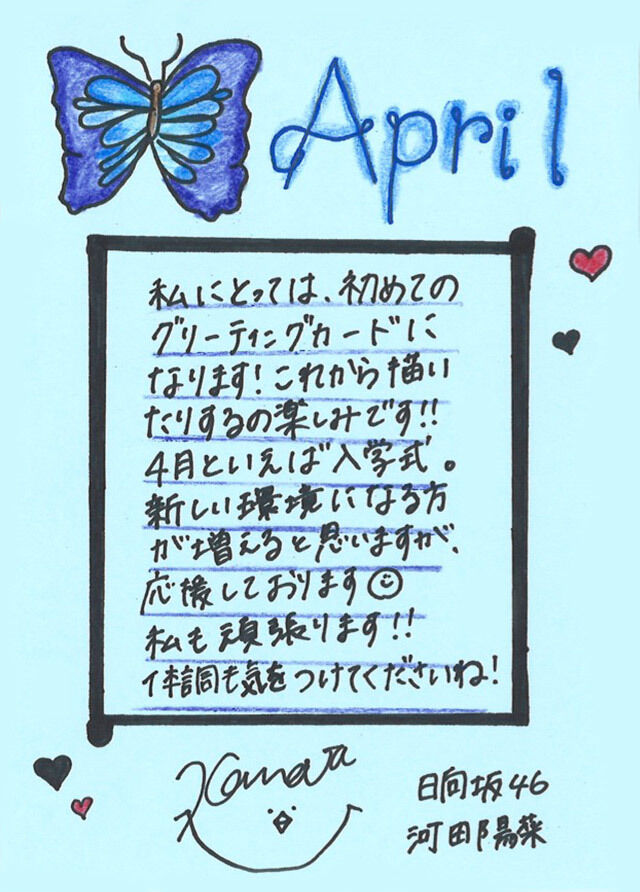 April
私にとっては、初めての
グリーティングカードに
なります！これから描い
たりするの楽しみです!!
4月といえば入学式。
新しい環境になる方
が増えると思いますが、
応援しております☺
私も頑張ります!!
体調も気をつけてくださいね！
Kanaya
日向坂46
河田陽菜